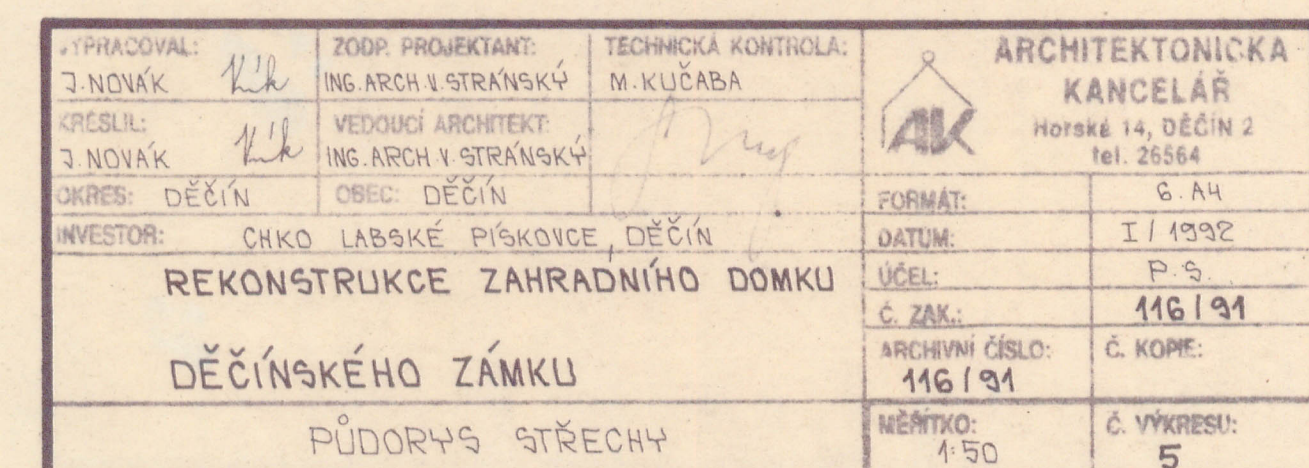 VYPRACOVAL:
J. NOVÁK
ZODP. PROJEKTANT:
ING. ARCH. V. STRÁNSKÝ
TECHNICKÁ KONTROLA:
M. KUČABA
KRESLIL:
J. NOVÁK
VEDOUCÍ ARCHITEKT:
ING. ARCH. V. STRÁNSKÝ
OKRES: DĚČÍN
OBEC: DĚČÍN
INVESTOR: CHKO LABSKÉ PÍSKOVCE, DĚČÍN
REKONSTRUKCE ZAHRADNÍHO DOMKU
DĚČÍNSKÉHO ZÁMKU
PŮDORYS STŘECHY
AK
ARCHITEKTONICKA
KANCELÁŘ
Horské 14, DĚČÍN 2
tel. 26564
FORMÁT: 6. A4
DATUM: I / 1992
ÚČEL: P.S.
Č. ZAK.: 116 / 91
ARCHIVNÍ ČÍSLO:
116 / 91
Č. KOPIE:
MĚŘÍTKO:
1:50
Č. VÝKRESU:
5